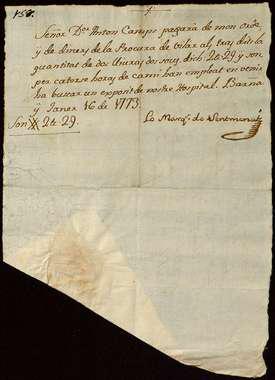 158.
Señor Dor Anton Camps pagara de mon orde,
y de diners de la Procura de Vilar al traÿdor la
quantitat de dos lliuras dos sous dich 2 tt 2 y son
per catorse horas de cami han empleat en venir
ha buscar un exposit de nostre Hospital. Barna
ÿ Janer 16 de 1773
Son 2 tt 2 9.
Lo Marqs. de Sentmanat